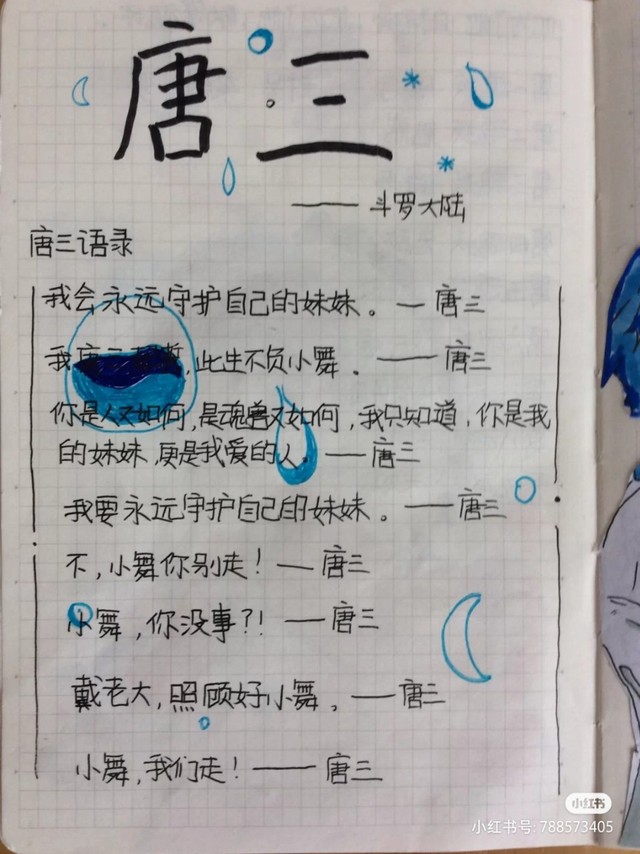 唐三
—— 斗罗大陆
唐三语录
我会永远守护自己的妹妹。— 唐三
我唐三,此生不负小舞。—— 唐三
你是人又如何,是魂兽又如何,我只知道,你是我
的妹妹,更是我爱的人。—— 唐三
我要永远守护自己的妹妹。—— 唐三
不,小舞你别走!— 唐三
小舞,你没事?!—— 唐三
戴老大,照顾好小舞。—— 唐三
小舞,我们走!—— 唐三
小红书
小红书号: 788573405